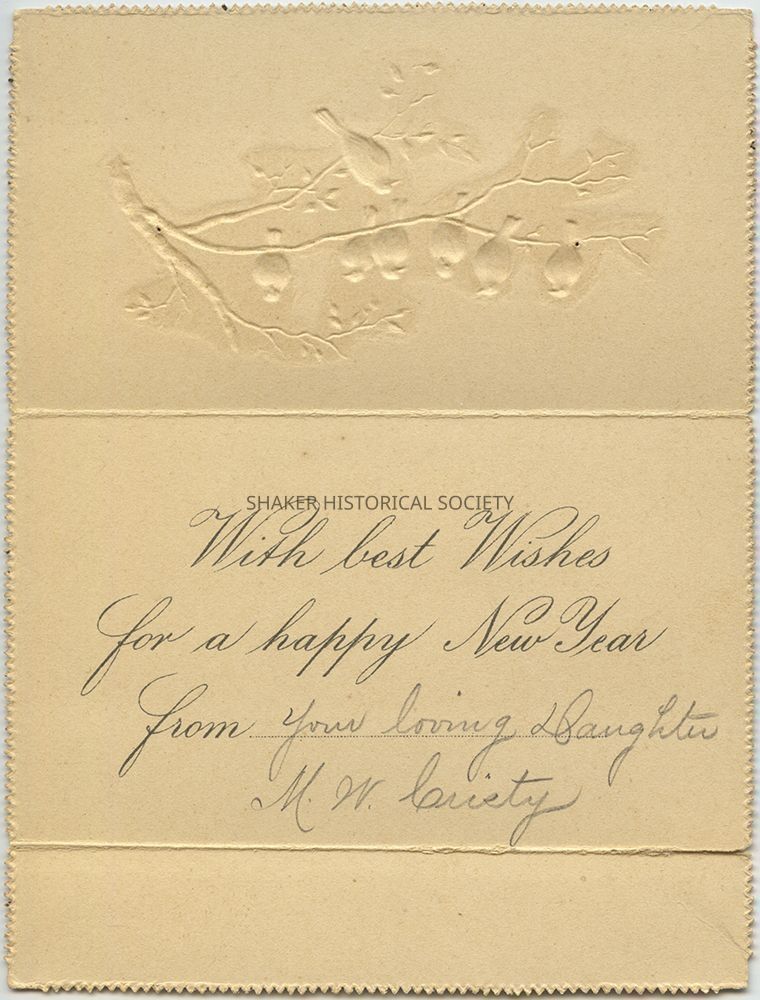 SHAKER HISTORICAL SOCIETY
With best Wishes
for a happy New Year
from Your loving Daughter
M. W. Cristy